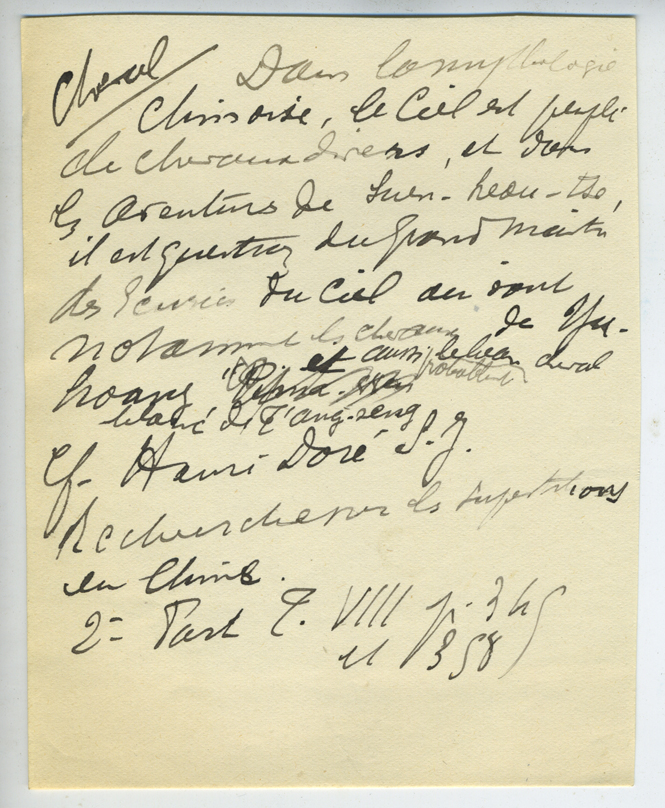 Cheval
Dans la mythologie
Chinoise, le Ciel est peuplé
de chevaux divers, et dans
les aventures de Suen-heou-tsé,
il est question du Grand Maître
des Ecuries du Ciel où sont
notamment les chevaux de Yu-
hoang et aussi probablement le beau cheval
blanc de T'ang-seng
Cf. Henri Doré S.J.
Recherches sur les superstitions
en Chine.
2e Part T. VIII p. 345
et 358